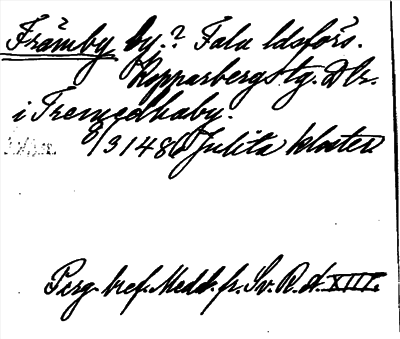 Främby by.? Falu ldsförs.
Kopparbergs tg. Dlr.
i Fremedhaby.
8/3 1486 Julita kloster.
Perg. bref. Medd. fr. Sv. R. A. XIII.